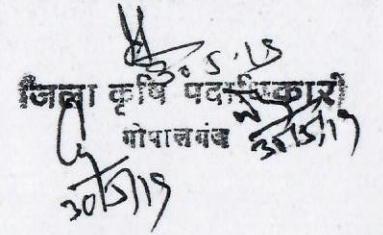 30.5.19
जिला कृषि पदाधिकारी
गोपालगंज
30/5/19
30/5/19